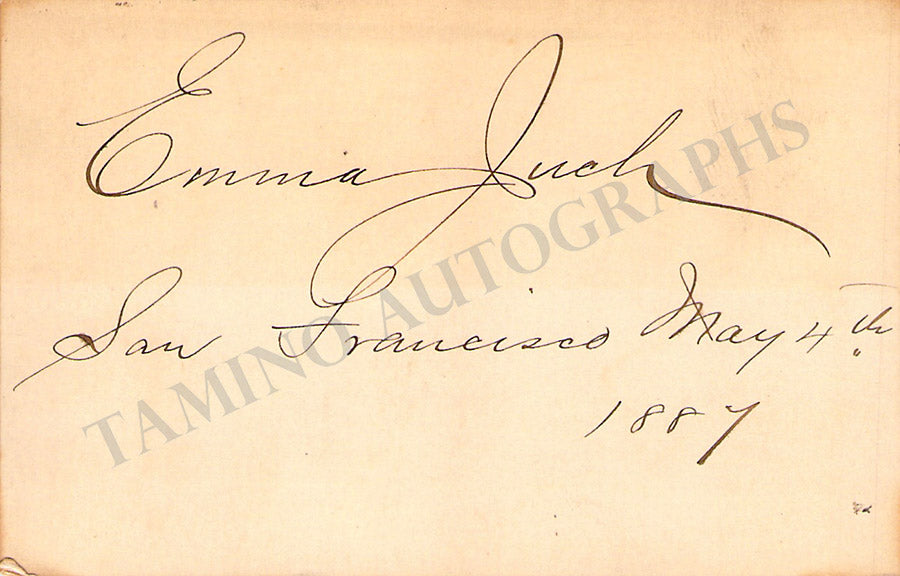 Emma Juch
San Francisco May 4th
1887
TAMINO AUTOGRAPHS